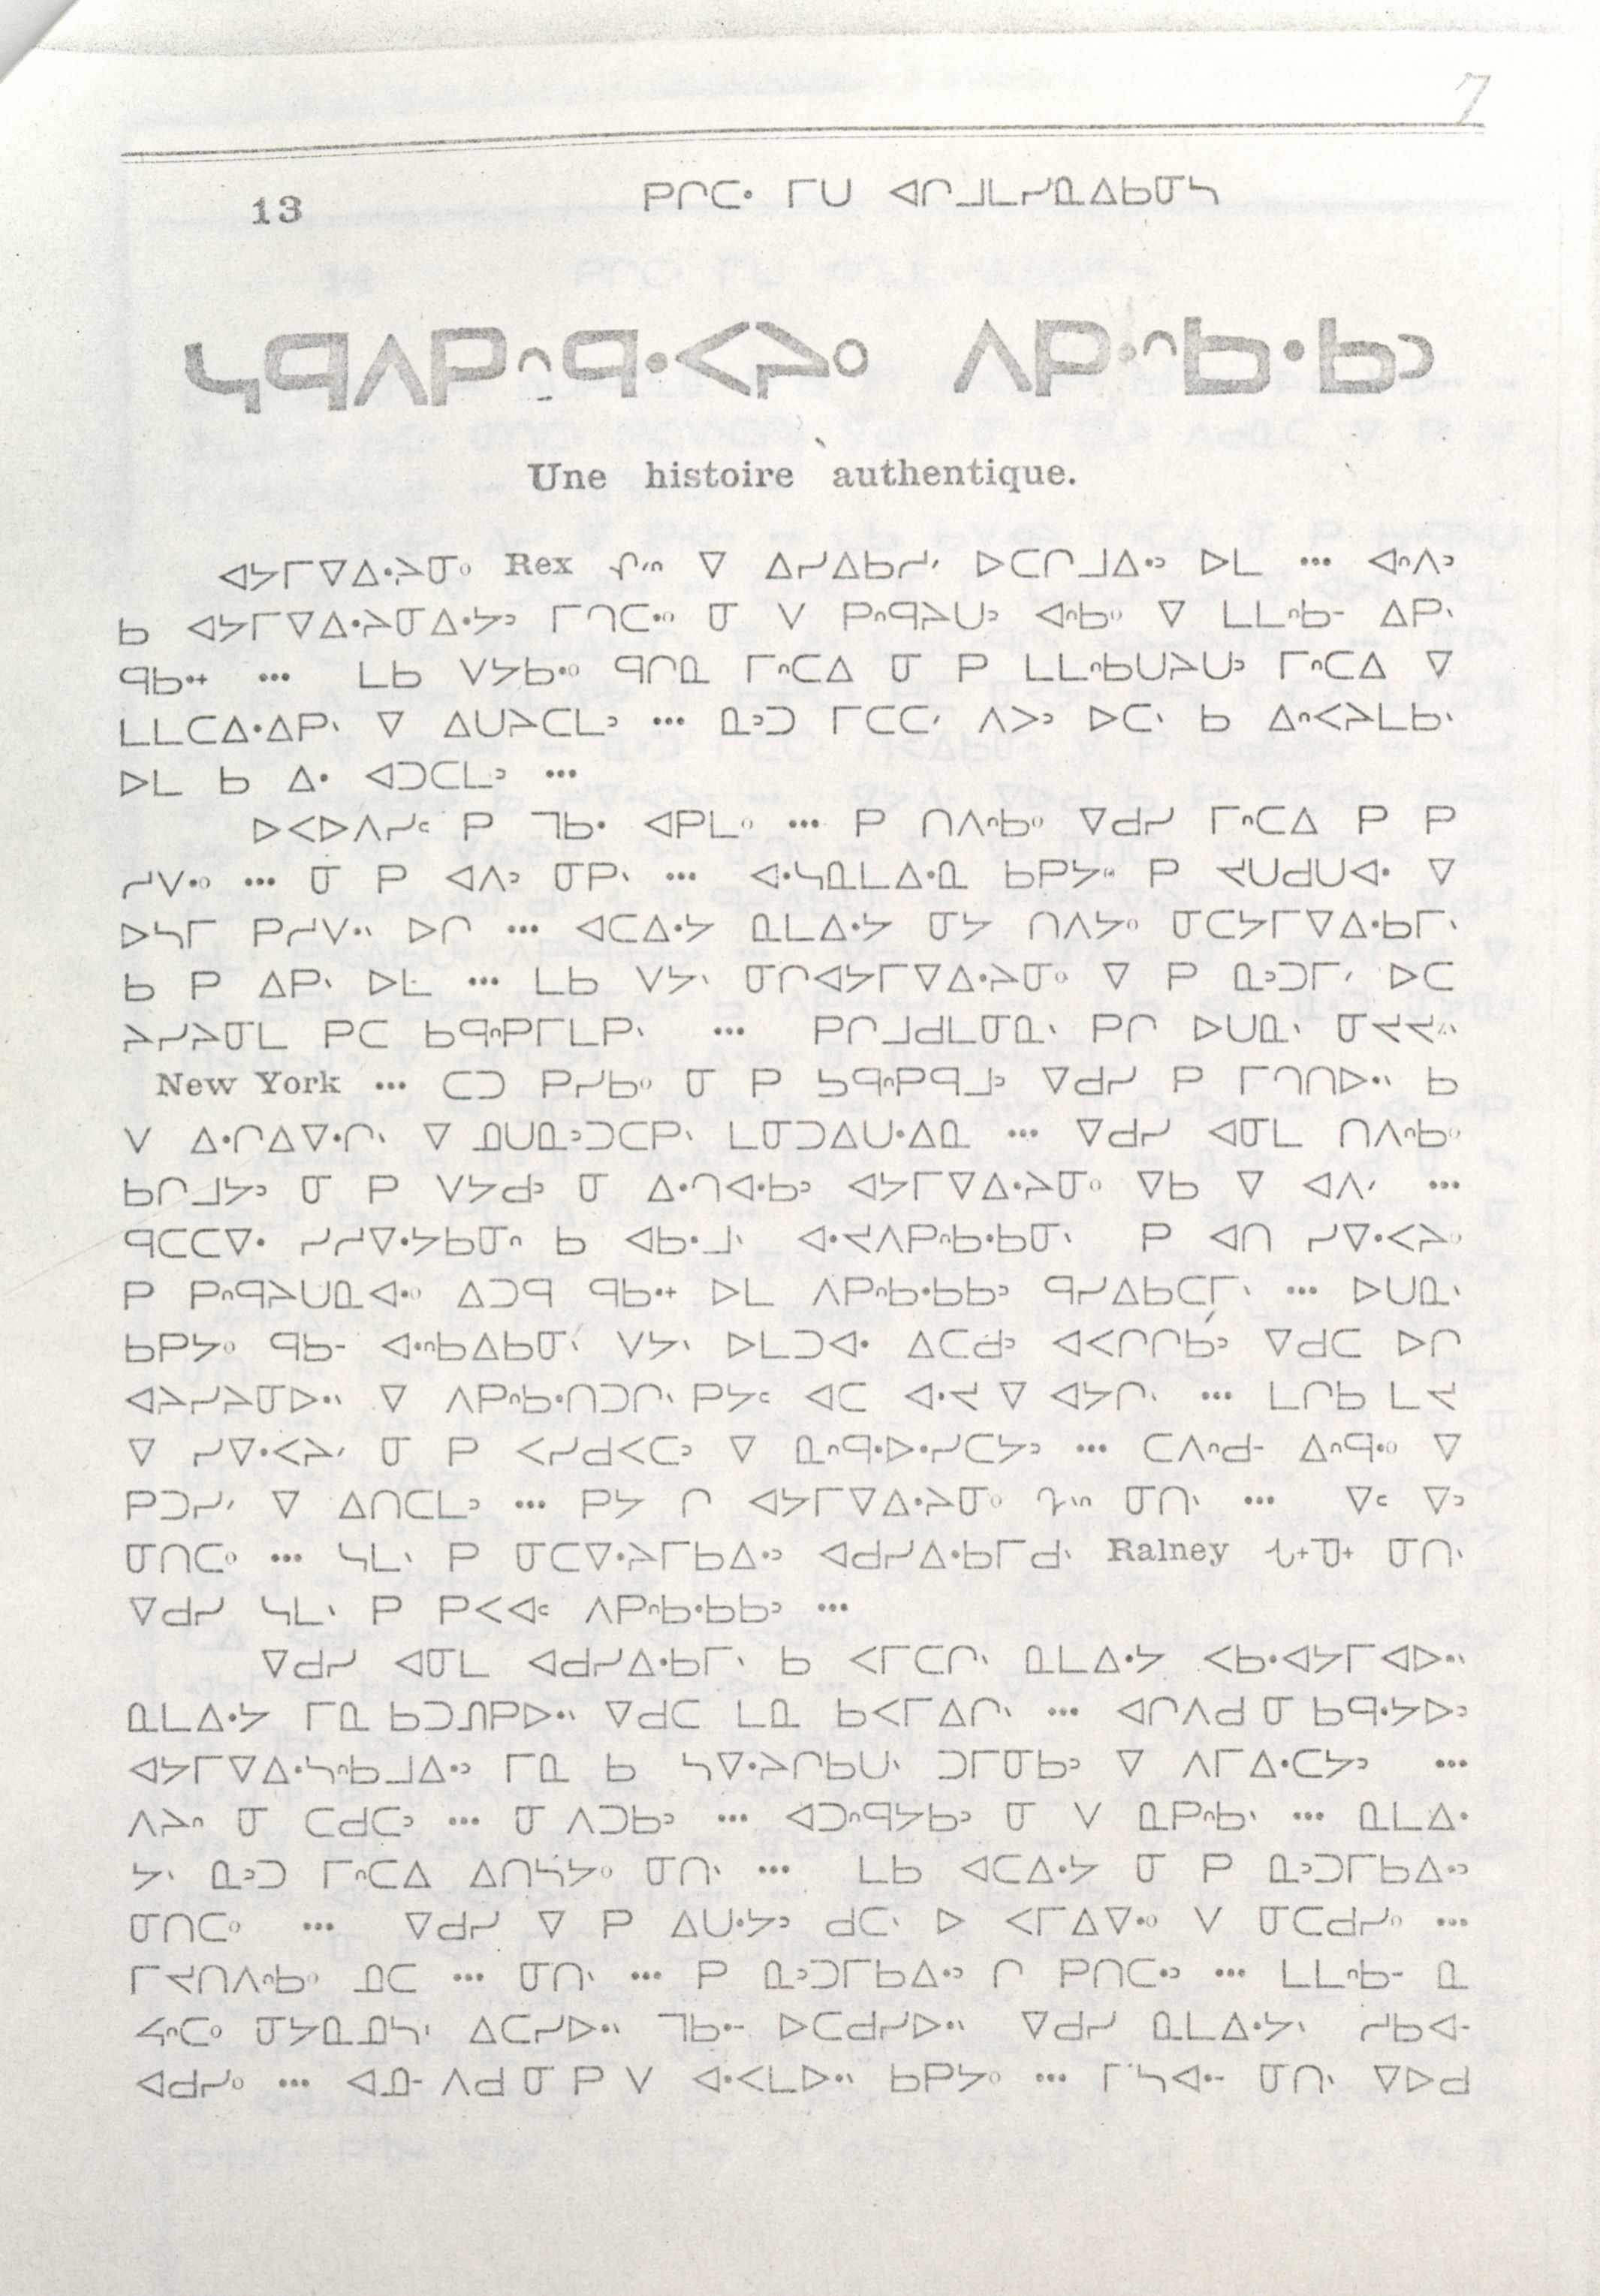 7
13 ᑭᒋᑕᐧ ᒥᑌ ᐊᒋᒧᒪᓯᓇᐃᑲᓂᓴ
ᓴᑫᐱᑭᐢᑫᐧᐸᔨᐤ ᐱᑭᐧᐢᑲᐧᑲᐣ
Une histoire authentique.
ᐊᔭᒥᐁᐃᐧᔨᓂᐤ Rex ᐁ ᐃᓯᐃᑲᓱᐟ ᐅᑕᒋᒧᐃᐧᐣ ᐅᒪ ... ᐊᐢᐱᐣ
ᑲ ᐊᔭᒥᐁᐃᐧᔨᓂᐃᐧᔭᐣ ᒥᒉᑕᐧᐤ ᓂ ᐯ ᑭᐢᑫᔨᑌᐣ ᐊᐢᑲᐤ ᐁ ᒪᒪᐢᑲᐨ ᐃᑭᐠ
ᑫᑲᐧᕀ ... ᒪᑲ ᐯᔭᑲᐧᐤ ᑫᒋᓇ ᒥᐢᑕᐃ ᓂ ᑭ ᒪᒪᐢᑲᑌᔨᑌᐣ ᒥᐢᑕᐃ ᐁ
ᒪᒪᑕᐃᐧᐃᑭᐠ ᐁ ᐃᑌᔨᑕᒪᐣ ... ᓇᐣᑐ ᒥᑕᑕᐟ ᐱᐳᐣ ᐅᑕᐠ ᑲ ᐃᐢᐸᔨᒪᑲᐠ
ᐅᒪ ᑲ ᐃᐧ ᐊᑐᑕᒪᐣ ...
ᐅᐸᐅᐱᓯᑦ ᑭ ᒣᑲᐧ ᐊᑭᒪᐤ ... ᑭ ᑎᐱᐢᑲᐤ ᐁᑯᓯ ᒥᐢᑕᐃ ᑭ ᑭ
ᓱᐯᐧᐤ ... ᓂ ᑭ ᐊᐱᐣ ᓂᑭᐠ ... ᐊᐧᓴᓇᒪᐃᐧᓇ ᑲᑭᔭᐤ ᑭ ᔪᑌᑯᑌᐊᐧ ᐁ
ᐅᓴᒥ ᑭᓱᐯᐧᐠ ᐅᒋ ... ᐊᑕᐃᐧᔭ ᓇᒪᐃᐧᔭ ᓂᔭ ᑎᐱᔭᐤ ᓂᑕᔭᒥᐁᐃᐧᑲᒥᐠ
ᑲ ᑭ ᐃᑭᐠ ᐅᒪ ... ᒪᑲ ᐯᔭᐠ ᓂᒋᐊᔭᒥᐁᐃᐧᔨᓂᐤ ᐁ ᑭ ᓇᐣᑐᒥᐟ ᐅᑕ
ᔨᓯᔨᓂᒪ ᑭᑕ ᑲᑫᐢᑭᒥᒪᑭᐠ ... ᑭᒋᒧᑯᒪᓂᓇᐠ ᑭᒋ ᐅᑌᓇᐠ
New York ... ᑕᑐ ᑭᓯᑲᐤ ᓂ ᑭ ᑲᑫᐢᑭᑫᒧᐣ ᐁᑯᓯ ᑭ ᒥᒉᑎᐅᐧᐠ ᑲ
ᐯ ᐃᐧᒋᐃᐁᐧᒋᐠ ᐁ ᓄᑌᓇᐣᑐᑕᑭᐠ ᒪᓂᑐᐃᑌᐧᐃᓇ ... ᐁᑯᓯ ᐊᓂᒪ ᑎᐱᐢᑲᐤ
ᑲᒋᒧᔭᐣ ᓂ ᑭ ᐯᔭᑯᐣ ᓂ ᐃᐧᒉᐊᐧᑲᐣ ᐊᔭᒥᐁᐃᐧᔨᓂᐤ ᐁᑲ ᐁ ᐊᐱᐟ ...
ᑫᑕᑕᐁᐧ ᓯᓱᐁᐧᔭᑲᓂᐢ ᑲ ᐊᑲᐧᒧᐠ ᑭ ᐊᑎ ᓯᐁᐧᐸᔨᐤ
ᑭ ᑭᐢᑫᔨᑌᓇᐊᐧᐤ ᐃᑐᑫ ᑫᑲᐧᕀ ᐅᒪ ᐱᑭᐢᑲᐧᑲᑲᐣ ᑫᓯᐃᑲᑕᒥᐠ ... ᐅᑌᓇᐠ
ᑲᑭᔭᐤ ᑫᑲᐨ ᐊᐧᐢᑲᐃᑲᓂᐠ ᐯᔭᐠ ᐅᒪᑐᐊᐧ ᐃᑕᑯᐣ ᐊᐸᒋᒋᑲᐣ ᐁᑯᑕ ᐅᒋ
ᐊᔨᓯᔨᓂᐅᐧᐠ ᐁ ᐱᑭᐢᑲᐧᑎᑐᒋᐠ ᑭᔭᑦ ᐊᑕ ᐊᐧᔪ ᐁ ᐊᔭᒋᐠ ... ᒪᒋᑲ ᒪᔪ
ᐁ ᓯᐁᐧᐸᔨᐟ ᓂ ᑭ ᐸᓯᑯᐸᑕᐣ ᐁ ᓇᐢᑫᐧᐅᐧᓯᑕᔭᐣ ... ᑕᐱᐢᑯᐨ ᐃᐢᑫᐧᐤ ᐁ
ᑭᑐᓯᐟ ᐁ ᐃᑎᑕᒪᐣ ... ᑭᔭ ᒋ ᐊᔭᒥᐁᐃᐧᔨᓂᐤ ᓂᑎᐠ ... ᐁᑦ ᐁᐣ
ᓂᑎᑕᐤ ... ᓴᒪᐠ ᑭ ᓂᑕᐁᐧᔨᒥᑲᐃᐧᐣ ᐊᑯᓯᐃᐧᑲᒥᑯᐠ Ralney ᓂᑎᐠ
ᐁᑯᓯ ᓴᒪᐠ ᑭ ᑭᐸᐊᑦ ᐱᑭᐢᑲᐧᑲᑲᐣ ...
ᐁᑯᓯ ᐊᓂᒪ ᐊᑯᓯᐃᐧᑲᒥᐠ ᑲ ᐸᒥᑕᒋᐠ ᓇᒪᐃᐧᔭ ᐸᑲᐧᐊᔭᒥᐊᐅᐧᐠ
ᓇᒪᐃᐧᔭ ᒥᓇ ᑲᑐᓕᑭᐅᐧᐠ ᐁᑯᑕ ᒪᓇ ᑲᐸᒥᐃᒋᐠ ... ᐊᒋᐱᑯ ᓂ ᑲᑫᐧᔭᐅᐣ
ᐊᔭᒥᐁᐃᐧᓴᐢᑲᒧᐃᐧᐣ ᒥᓇ ᑲ ᓴᐁᐧᔨᒋᑲᑌᐠ ᑐᒥᓂᑲᐣ ᐁ ᐱᒥᐃᐧᑕᔭᐣ ...
ᐱᔨᐢ ᓂ ᑕᑯᑕᐣ ... ᓂ ᐱᑐᑲᐣ ... ᐊᑐᐢᑫᔭᑲᐣ ᓂ ᐯ ᓇᑭᐢᑲᐠ ... ᓇᒪᐃᐧ
ᔭᐠ ᓇᐣᑐ ᒥᐢᑕᐃ ᐃᑎᓴᔭᐤ ᓂᑎᐠ ... ᒪᑲ ᐊᑕᐃᐧᔭ ᓂ ᑭ ᓇᐣᑐᒥᑲᐃᐧᐣ
ᓂᑎᑕᐤ ... ᐁᑯᓯ ᐁ ᑭ ᐃᑌᐧᔭᐣ ᑯᑕᐠ ᐅ ᐸᒥᐃᐁᐧᐤ ᐯ ᓂᑕᑯᓯᐤ ...
ᒥᔪᑎᐱᐢᑲᐤ ᓄᑕ ... ᓂᑎᐠ ... ᑭ ᓇᐣᑐᒥᑲᐃᐧᐣ ᒋ ᑭᑎᑕᐧᐣ ... ᒪᒪᐢᑲᐨ ᓇ
ᐃᑕᓯᐅᐧᐠ ᒣᑲᐧᐨ ᐅᑕᑯᓯᐅᐧᐠ ᐁᑯᓯ ᓇᒪᐃᐧᔭᐠ ᓱᑲᐊᐨ
ᐊᑯᓯᐤ ... ᐊᓄᐨ ᐱᑯ ᓂ ᑭ ᐯ ᐊᐧᐸᒪᐅᐧᐠ ᑲᑭᔭᐤ ... ᓂᑎᐠ ᐁᐅᑯ